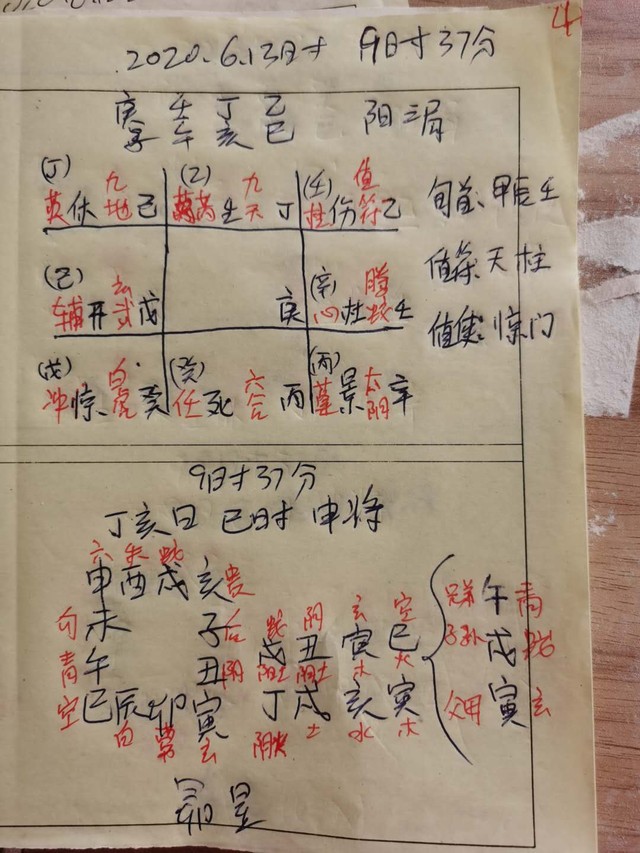 4
2020.6.13日计 9时37分
庚 壬 丁 乙
子 午 亥 巳 阳三局
(丁) 九 (乙) 九 (壬) 值
英休地己 芮生天丁 柱伤符乙
旬首:甲辰壬
(己) 玄 (辛) 腾
辅开武戊 庚 心杜蛇壬
值符:天柱
值使:惊门
(戊) 白 (癸) 六 (丙) 太
冲惊虎癸 任死合丙 蓬景阴辛
9时37分
丁亥日 巳时 申将
六 朱 蛇
申酉戌亥贵
勾未 子后 蛇 阴 玄 空
戌 丑 寅 巳
兄弟 午 青
青午 丑阴 阳土 阴土 木 火
子孙 戌 蛇
空巳辰卯寅 丁 戌 亥 寅
父母 寅 玄
白 常 玄 阴火 土 水 木
昴星